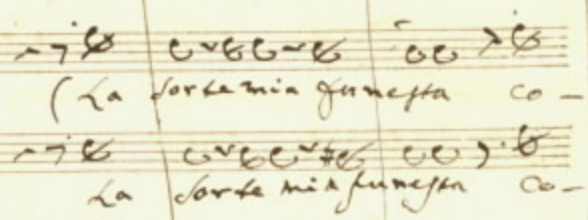 (La sorte mia funesta co-
La sorte mia funesta co-